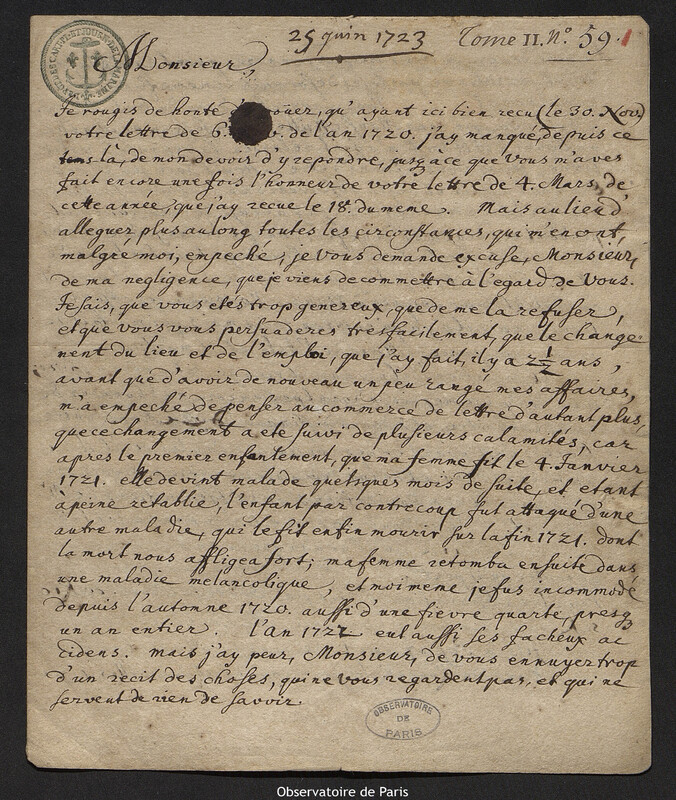 25 Juin 1723 Tome II. n.° 59.
Monsieur,
Je rougis de honte d'avoüer, qu'ayant ici bien recu (le 30. Nov.)
votre lettre de 6. de l'an 1720. j'ay manqué, depuis ce
tems là, de mon devoir d'y repondre, jusqàce que vous m'aves
fait encore une fois l'honneur de votre lettre de 4. Mars, de
cette année, que j'ay recue le 18. du meme. Mais au lieu d'
alleguer plus au long toutes les circonstances, qui m'en ont,
malgré moi, empeché; je vous demande excuse, Monsieur,
de ma negligence, que je viens de commettre à l'egard de Vous.
Je sais, que vous etes trop genereux, que de me la refuser,
et que vous vous persuaderes tres facilement, que le change-
ment du lieu et de l'emploi, que j'ay fait, il y a 2 1/2 ans,
avant que d'avoir de nouveau un peu rangé mes affaires,
m'a empeché de penser au commerce de lettre d'autant plus,
que ce changement a eté suivi de plusieurs calamités, car
apres le premier enfantement, que ma femme fit le 4. Janvier
1721. elle devint malade quelsques mois de suite, et etant
à peine retablie, l'enfant par contrecoup fut attaqué d'une
autre maladie, qui le fit enfin mourir sur la fin 1721. dont
la mort nous affligea fort; ma femme retomba ensuite dans
une maladie melancolique, et moi meme je fus incommodé
depuis l'automne 1720. aussi d'une fievre quarte, presq
un an entier. l'an 1722 eut aussi ses facheux ac
cidens. mais j'ay peur, Monsieur, de vous ennuyer trop
d'un recit des choses, qui ne vous regardent pas, et qui ne
servent de rien de savoir.
OBSERVATOIRE
DE
PARIS
Observatoire de Paris